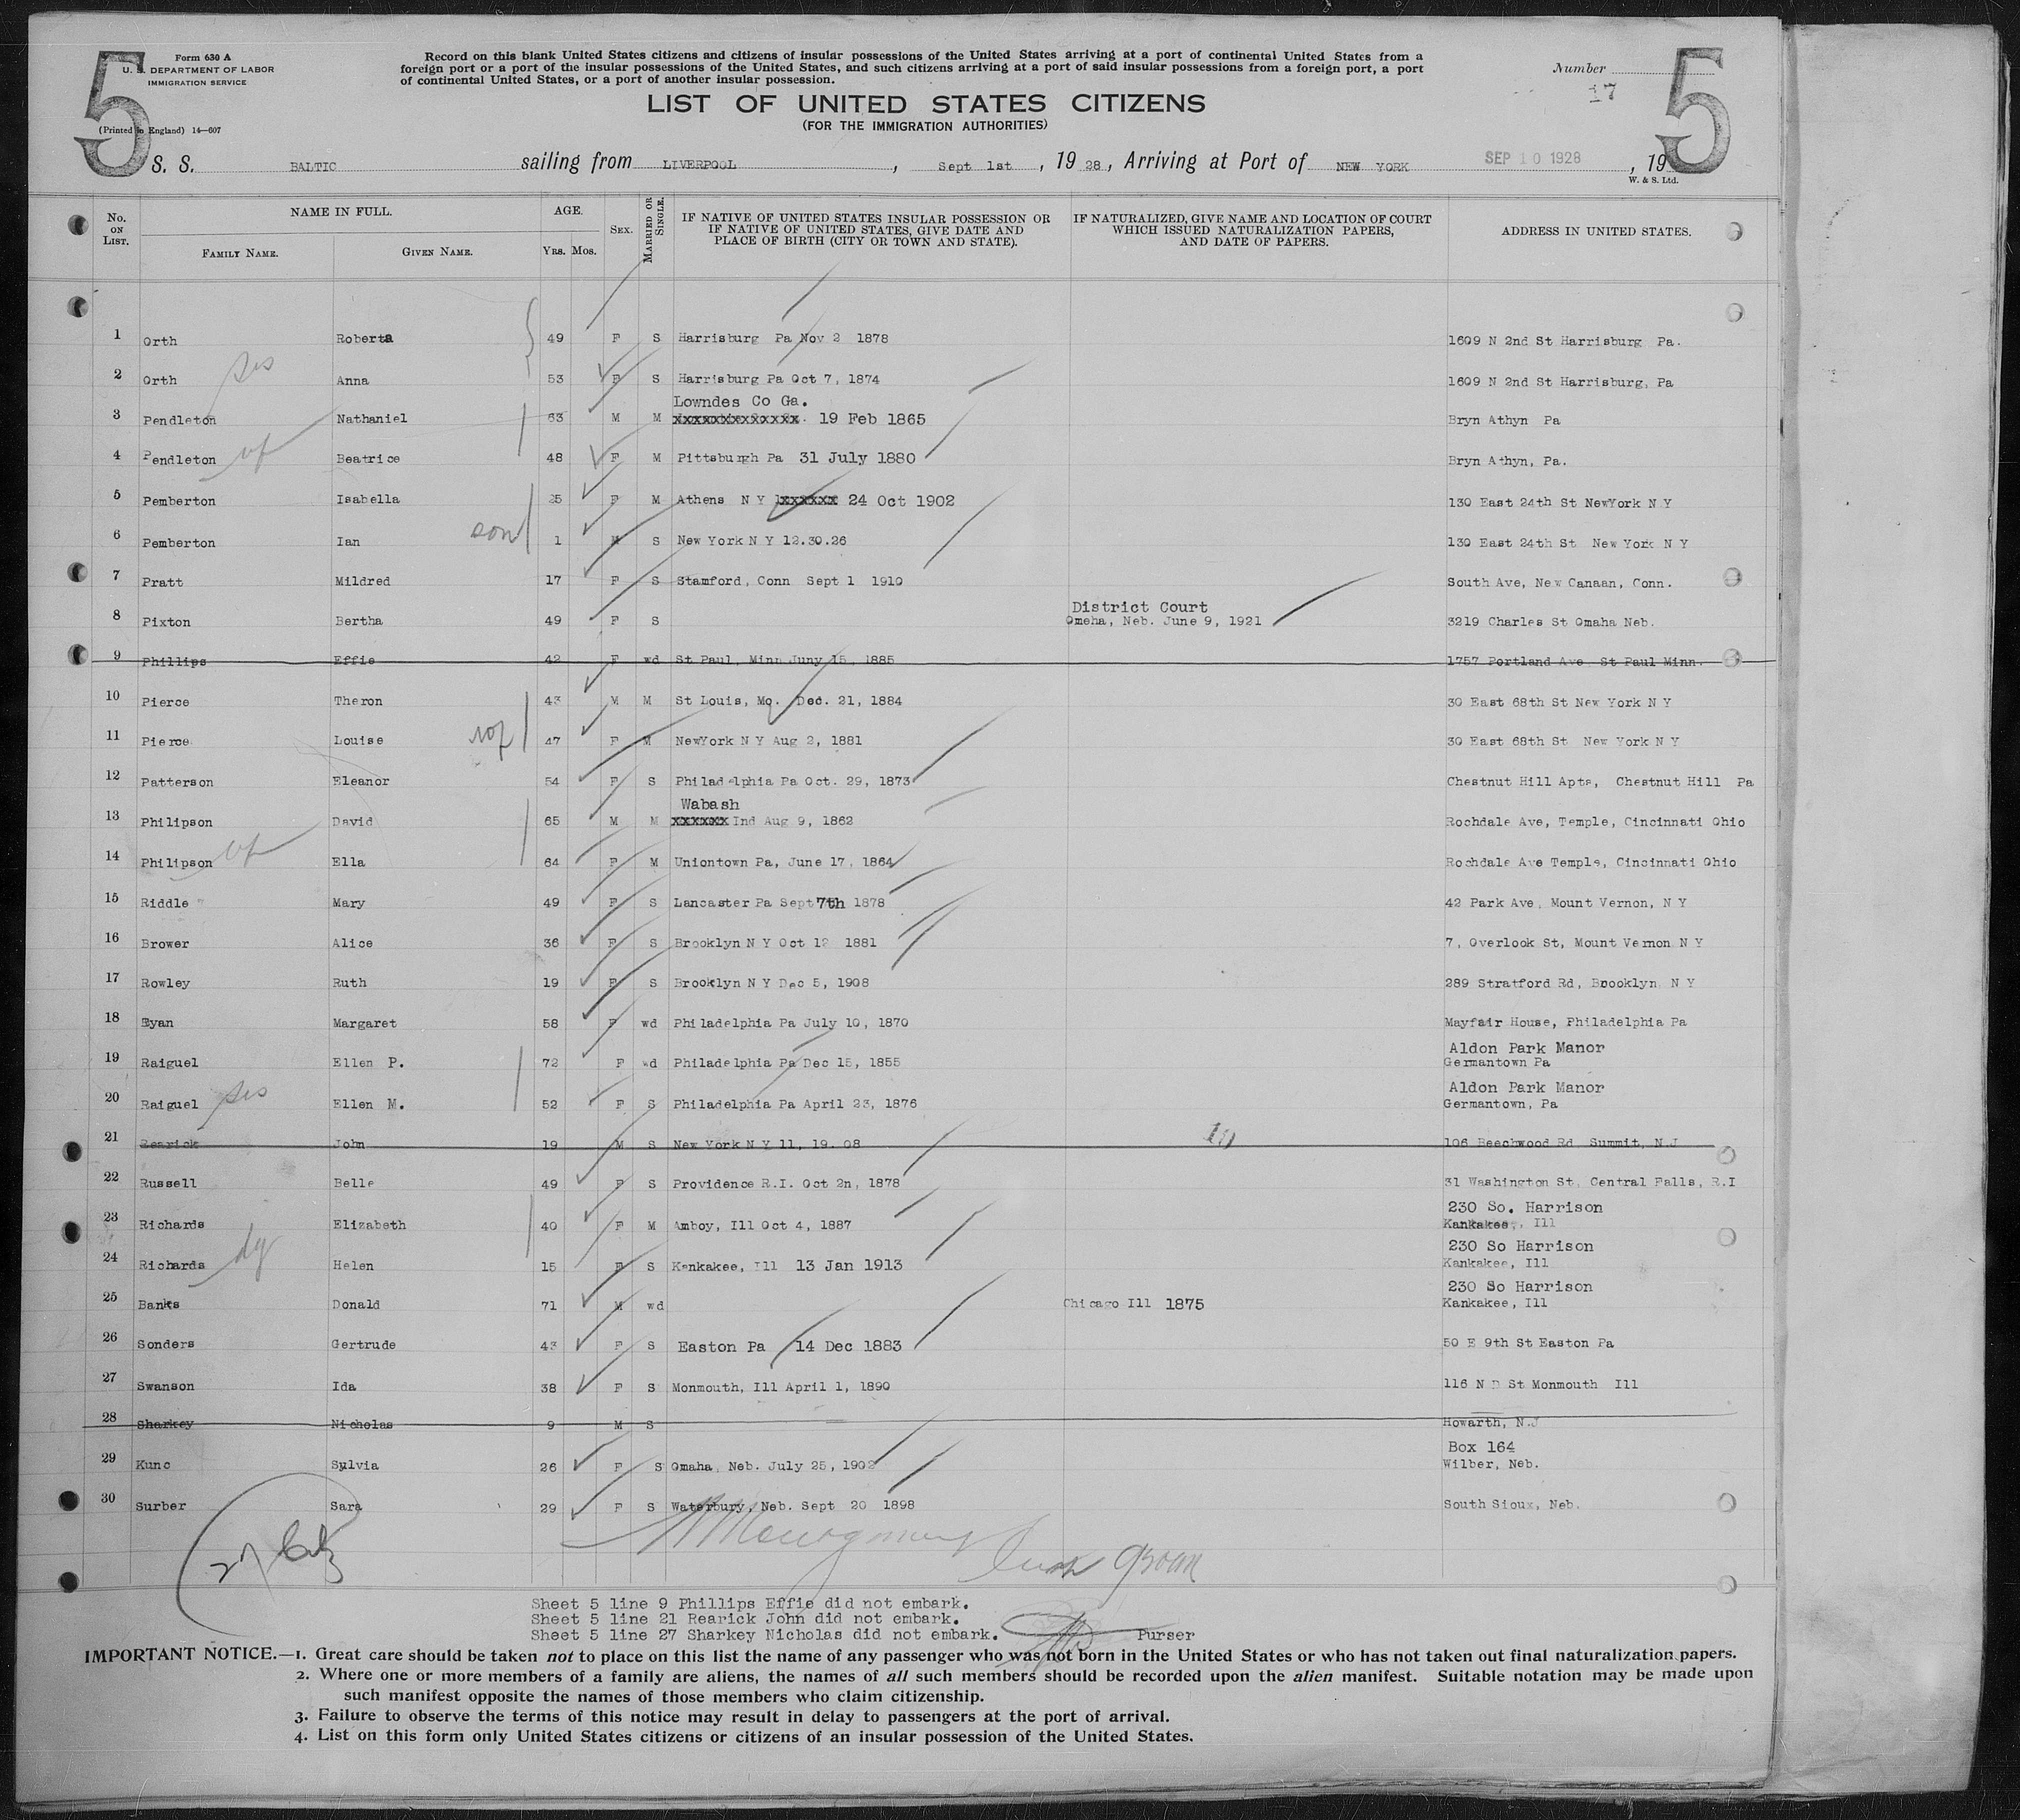 5
Form 630 A
U. S. DEPARTMENT OF LABOR
IMMIGRATION SERVICE
(Printed in England) 14—607
Record on this blank United States citizens and citizens of insular possessions of the United States arriving at a port of continental United States from a
foreign port or a port of the insular possessions of the United States, and such citizens arriving at a port of said insular possessions from a foreign port, a port
of continental United States, or a port of another insular possession.
Number
17
5
LIST OF UNITED STATES CITIZENS
(FOR THE IMMIGRATION AUTHORITIES)
S. S. BALTIC sailing from LIVERPOOL, Sept 1st, 1928, Arriving at Port of NEW YORK SEP 10 1928, 19
W. & S. Ltd.
No. ON LIST. NAME IN FULL. FAMILY NAME. GIVEN NAME. AGE. Yrs. Mos. SEX. MARRIED OR SINGLE. IF NATIVE OF UNITED STATES INSULAR POSSESSION OR IF NATIVE OF UNITED STATES, GIVE DATE AND PLACE OF BIRTH (CITY OR TOWN AND STATE). IF NATURALIZED, GIVE NAME AND LOCATION OF COURT WHICH ISSUED NATURALIZATION PAPERS, AND DATE OF PAPERS. ADDRESS IN UNITED STATES.
1 Orth Roberta 49 F S Harrisburg Pa Nov 2 1878 1609 N 2nd St Harrisburg Pa.
sis
2 Orth Anna 53 F S Harrisburg Pa Oct 7, 1874 1609 N 2nd St Harrisburg, Pa
Lowndes Co Ga.
3 Pendleton Nathaniel 63 M M xxxxxxxxxxxxxx. 19 Feb 1865 Bryn Athyn Pa
wf
4 Pendleton Beatrice 48 F M Pittsburgh Pa 31 July 1880 Bryn Athyn, Pa.
5 Pemberton Isabella 25 F M Athens N Y xxxxxx 24 Oct 1902 130 East 24th St NewYork N Y
son
6 Pemberton Ian 1 M S New York N Y 12.30.26 130 East 24th St New York N Y
7 Pratt Mildred 17 F S Stamford, Conn Sept 1 1910 South Ave, New Canaan, Conn.
District Court
8 Pixton Bertha 49 F S Omeha, Neb. June 9, 1921 3219 Charles St Omaha Neb.
9 Phillips Effie 42 F wd St Paul, Minn Juny 15, 1885 1757 Portland Ave St Paul Minn.
10 Pierce Theron 43 M M St Louis, Mo. Dec. 21, 1884 30 East 68th St New York N Y
11 Pierce Louise 47 F M NewYork N Y Aug 2, 1881 30 East 68th St New York N Y
12 Patterson Eleanor 54 F S Philadelphia Pa Oct. 29, 1873 Chestnut Hill Apts, Chestnut Hill Pa
Wabash
13 Philipson David 65 M M xxxxxx Ind Aug 9, 1862 Rochdale Ave, Temple, Cincinnati Ohio
wf
14 Philipson Ella 64 F M Uniontown Pa, June 17, 1864 Rochdale Ave Temple, Cincinnati Ohio
15 Riddle Mary 49 F S Lancaster Pa Sept 7th 1878 42 Park Ave, Mount Vernon, N Y
16 Brower Alice 36 F S Brooklyn N Y Oct 12 1881 7, Overlook St, Mount Vernon N Y
17 Rowley Ruth 19 F S Brooklyn N Y Dec 5, 1908 289 Stratford Rd, Brooklyn N Y
18 Ryan Margaret 58 F wd Philadelphia Pa July 10, 1870 Mayfair House, Philadelphia Pa
Aldon Park Manor
19 Raiguel Ellen P. 72 F wd Philadelphia Pa Dec 15, 1855 Germantown Pa
Aldon Park Manor
sis
20 Raiguel Ellen M. 52 F S Philadelphia Pa April 23, 1876 Germantown, Pa
21 Rearick John 19 M S New York N Y 11, 19. 08 106 Beechwood Rd Summit, N.J
22 Russell Belle 49 F S Providence R.I. Oct 2n, 1878 31 Washington St, Central Falls, R.I
230 So. Harrison
23 Richards Elizabeth 40 F M Amboy, Ill Oct 4, 1887 Kankakee, Ill
dg
230 So Harrison
24 Richards Helen 15 F S Kankakee, Ill 13 Jan 1913 Kankakee, Ill
230 So Harrison
25 Banks Donald 71 M wd Chicago Ill 1875 Kankakee, Ill
26 Sonders Gertrude 43 F S Easton Pa 14 Dec 1883 50 E 9th St Easton Pa
27 Swanson Ida 38 F S Monmouth, Ill April 1, 1890 116 N D St Monmouth Ill
28 Sharkey Nicholas 9 M S Howarth, N.J
Box 164
29 Kunc Sylvia 26 F S Omaha, Neb. July 25, 1902 Wilber, Neb.
30 Surber Sara 29 F S Waterbury, Neb. Sept 20 1898 South Sioux, Neb.
27
Sheet 5 line 9 Phillips Effie did not embark.
Sheet 5 line 21 Rearick John did not embark.
Sheet 5 line 27 Sharkey Nicholas did not embark. Purser
IMPORTANT NOTICE.—1. Great care should be taken not to place on this list the name of any passenger who was not born in the United States or who has not taken out final naturalization papers.
2. Where one or more members of a family are aliens, the names of all such members should be recorded upon the alien manifest. Suitable notation may be made upon
such manifest opposite the names of those members who claim citizenship.
3. Failure to observe the terms of this notice may result in delay to passengers at the port of arrival.
4. List on this form only United States citizens or citizens of an insular possession of the United States.